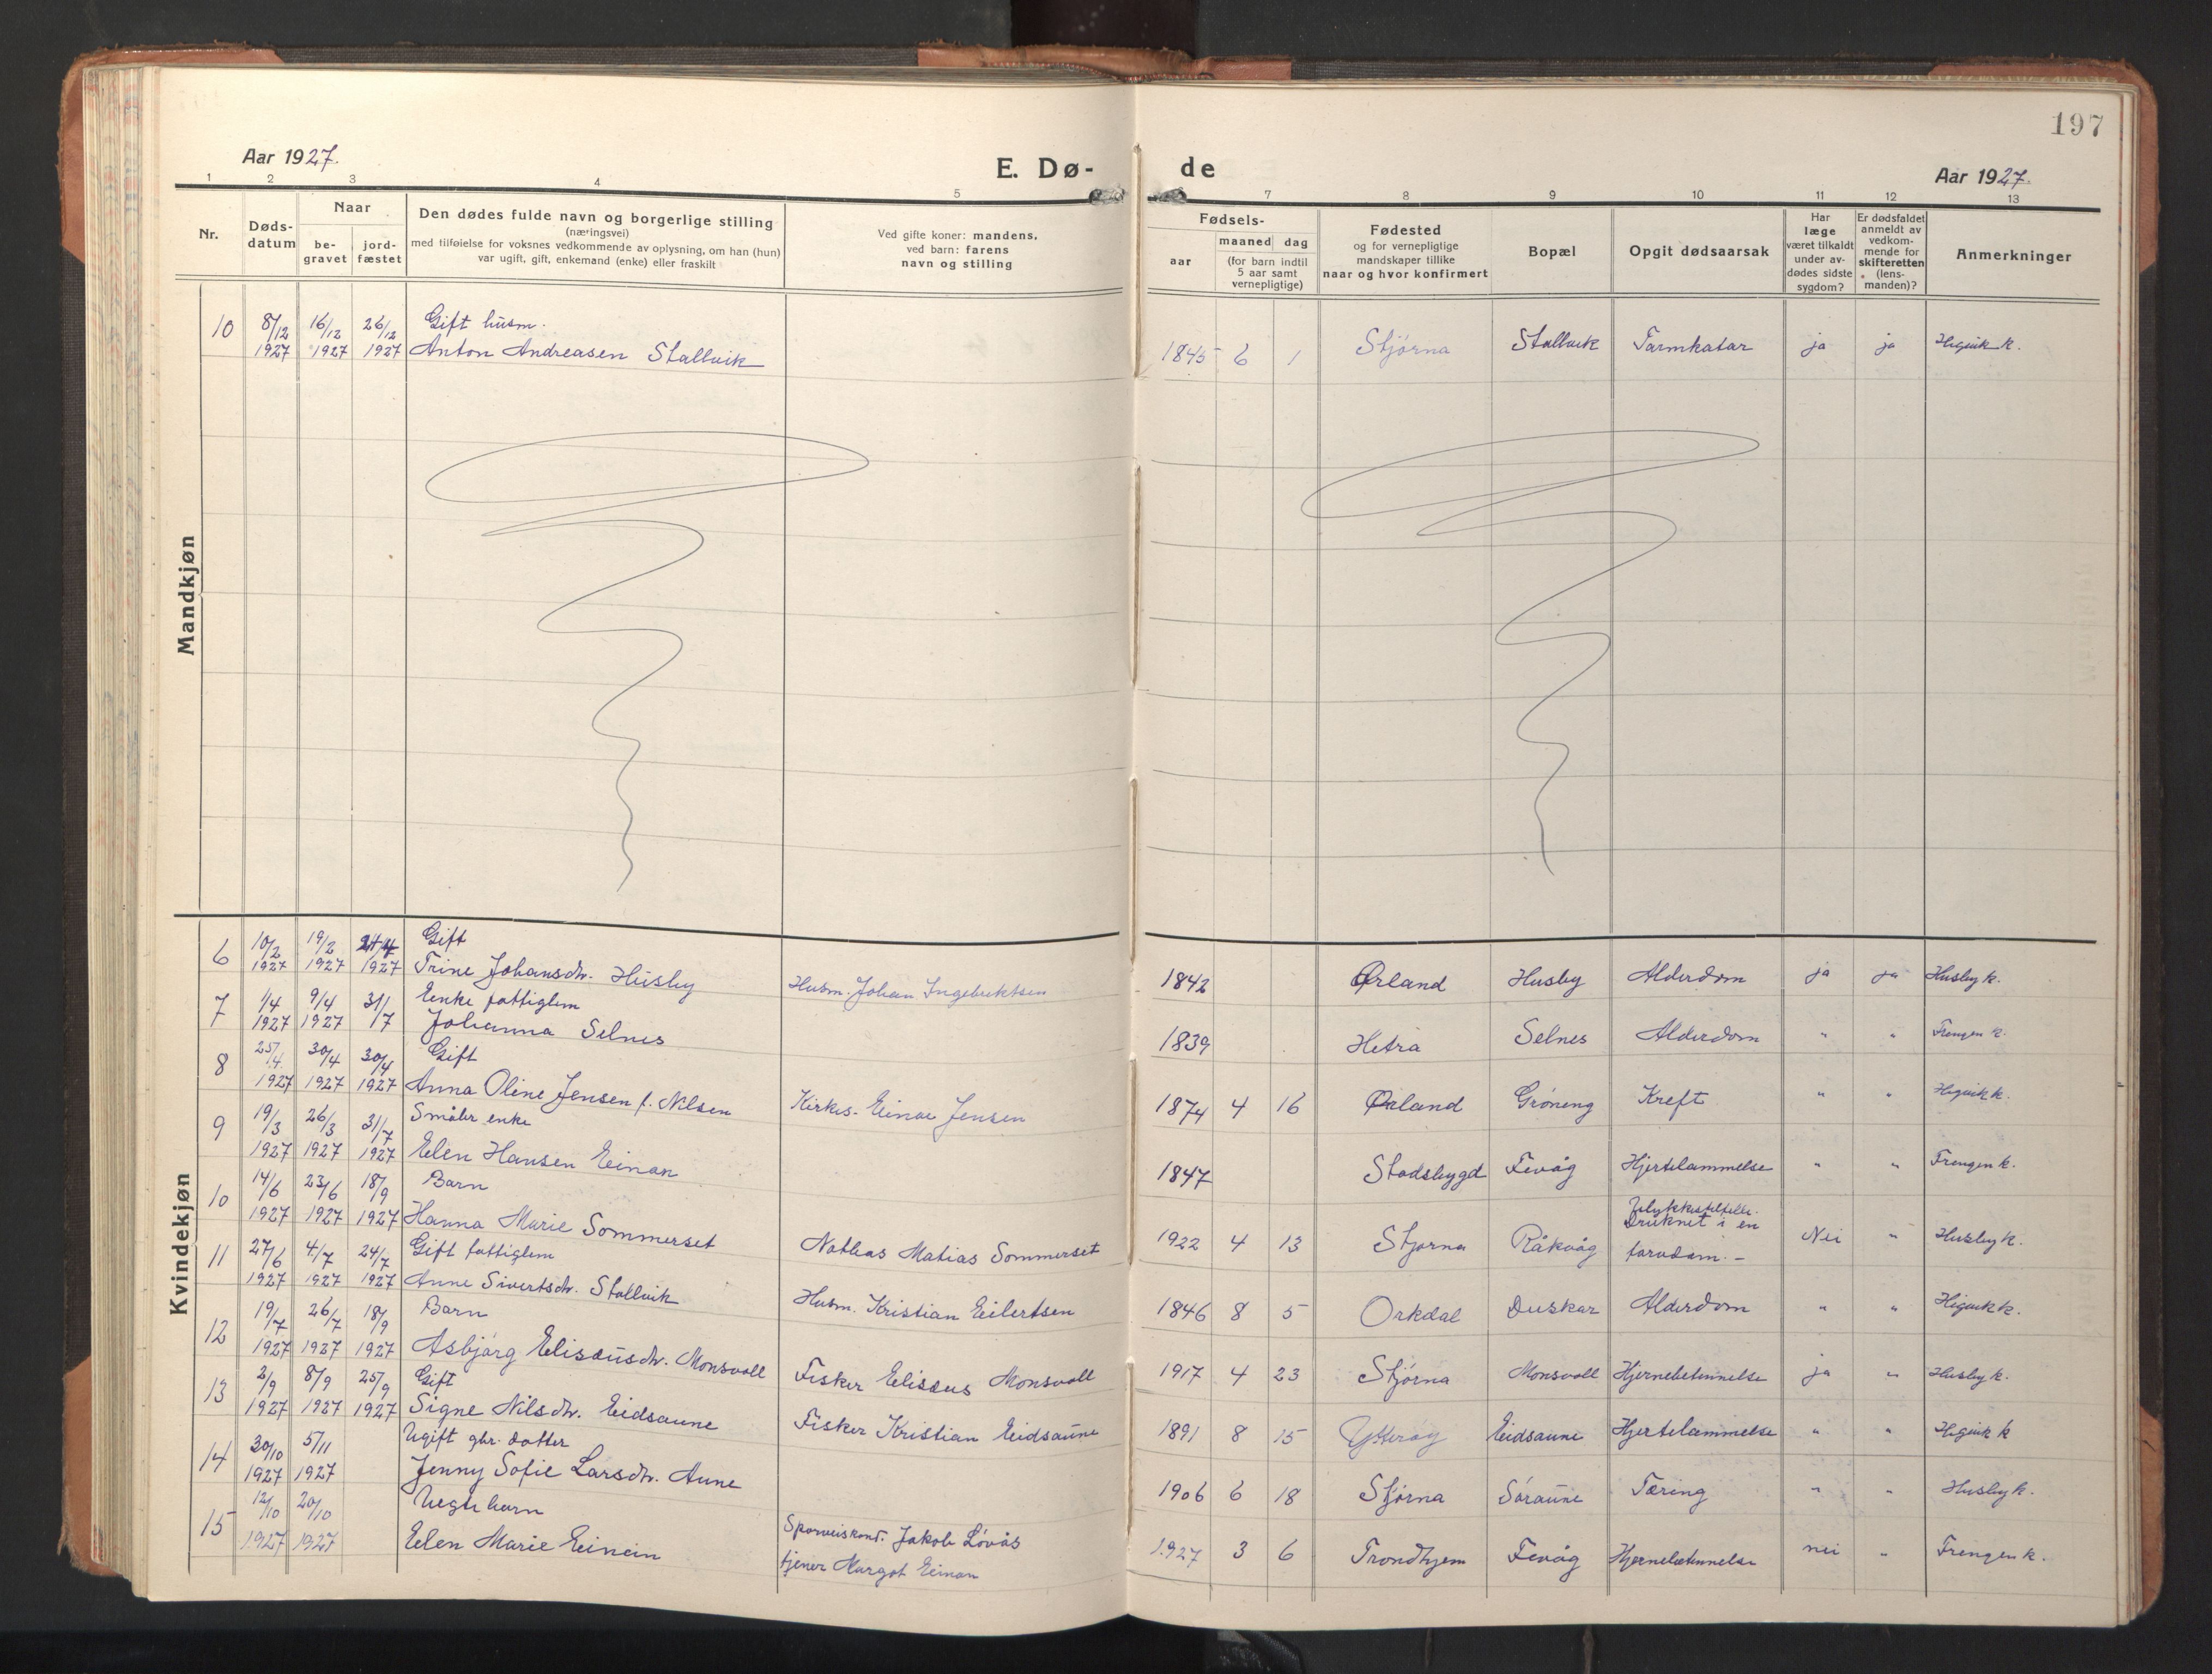 197
Aar 1927.
E. Dø-
de
Aar 1927.
1 2 3 4 5 7 8 9 10 11 12 13
Nr.
Døds-
datum
Naar
be-
gravet
jord-
fæstet
Den dødes fulde navn og borgerlige stilling
(næringsvei)
med tilføielse for voksnes vedkommende av oplysning, om han (hun)
var ugift, gift, enkemand (enke) eller fraskilt
Ved gifte koner: mandens,
ved barn: farens
navn og stilling
Fødsels-
aar
maaned dag
(for barn indtil
5 aar samt
vernepligtige)
Fødested
og for vernepligtige
mandskaper tillike
naar og hvor konfirmert
Bopæl
Opgit dødsaarsak
Har
læge
været tilkaldt
under av-
dødes sidste
sygdom?
Er dødsfaldet
anmeldt av
vedkom-
mende for
skifteretten
(lens-
manden)?
Anmerkninger
Mandkjøn
10 8/12 16/12 26/12 Gift husm.
1927 1927 1927 Anton Andreasen Stallvik 1845 6 1 Stjørna Stallvik Tarmkatar ja ja Heguik k.
Kvindekjøn
6 10/2 19/2 Gift
1927 1927 1927 Trine Johansdtr. Husby Husm. Johan Ingebriktsen 1842 Ørland Husby Alderdom ja ja Husby k.
7 1/4 9/4 31/ Enke fattiglem
1927 1927 17 Johanna Selnes 1839 Hetra Selnes Alderdom " " Frengen k.
8 25/4 30/4 30/4 Gift
1927 1927 1927 Anna Oline Jensen f. Nilsen Kirkes. Einar Jensen 1874 4 16 Ørland Grøneng Kreft " " Heguik k.
9 19/3 26/3 31/7 Småbr. enke
1927 1927 1927 Elen Hansen Einan 1847 Stadsbygd Fevåg Hjertelammelse " " Frengen k.
10 14/6 23/6 18/9 Barn
1927 1927 1927 Hanna Marie Sommerset Nathias Matias Sommerset 1922 4 13 Stjørna Råkvåg Ulykkestilfelle.
Druknet i en
torvdam. – Nei " Husby k.
11 27/6 4/7 24/7 Gift fattiglem
1927 1927 1927 Anne Sivertsdtr. Stallvik Husm. Kristian Eilertsen 1846 8 5 Orkdal Duskar Alderdom " " Heguik k.
12 19/7 26/7 18/9 Barn
1927 1927 1927 Asbjørg Elisæusdtr. Monsvoll Fisker Elisæus Monsvoll 1917 4 23 Stjørna Monsvoll Hjernebetennelse ja " Husby k.
13 2/9 8/9 25/9 Gift
1927 1927 1927 Signe Nilsdtr. Eidsaune Fisker Kristian Eidsaune 1891 8 15 Ytterøy Eidsaune Hjertelammelse " " Heguik k
14 30/10 5/11 Ugift gbr. datter
1927 1927 Jenny Sofie Larsdtr. Aune 1906 6 18 Stjørna Søraune Tæring " " Husby k.
15 12/10 20/10 Uegte barn
1927 1927 Elen Marie Einan Sporveiskond. Jakob Løvås
tjener Margot Einan 1927 3 6 Trondhjem Fevåg Hjernebetennelse nei " Frengen k.